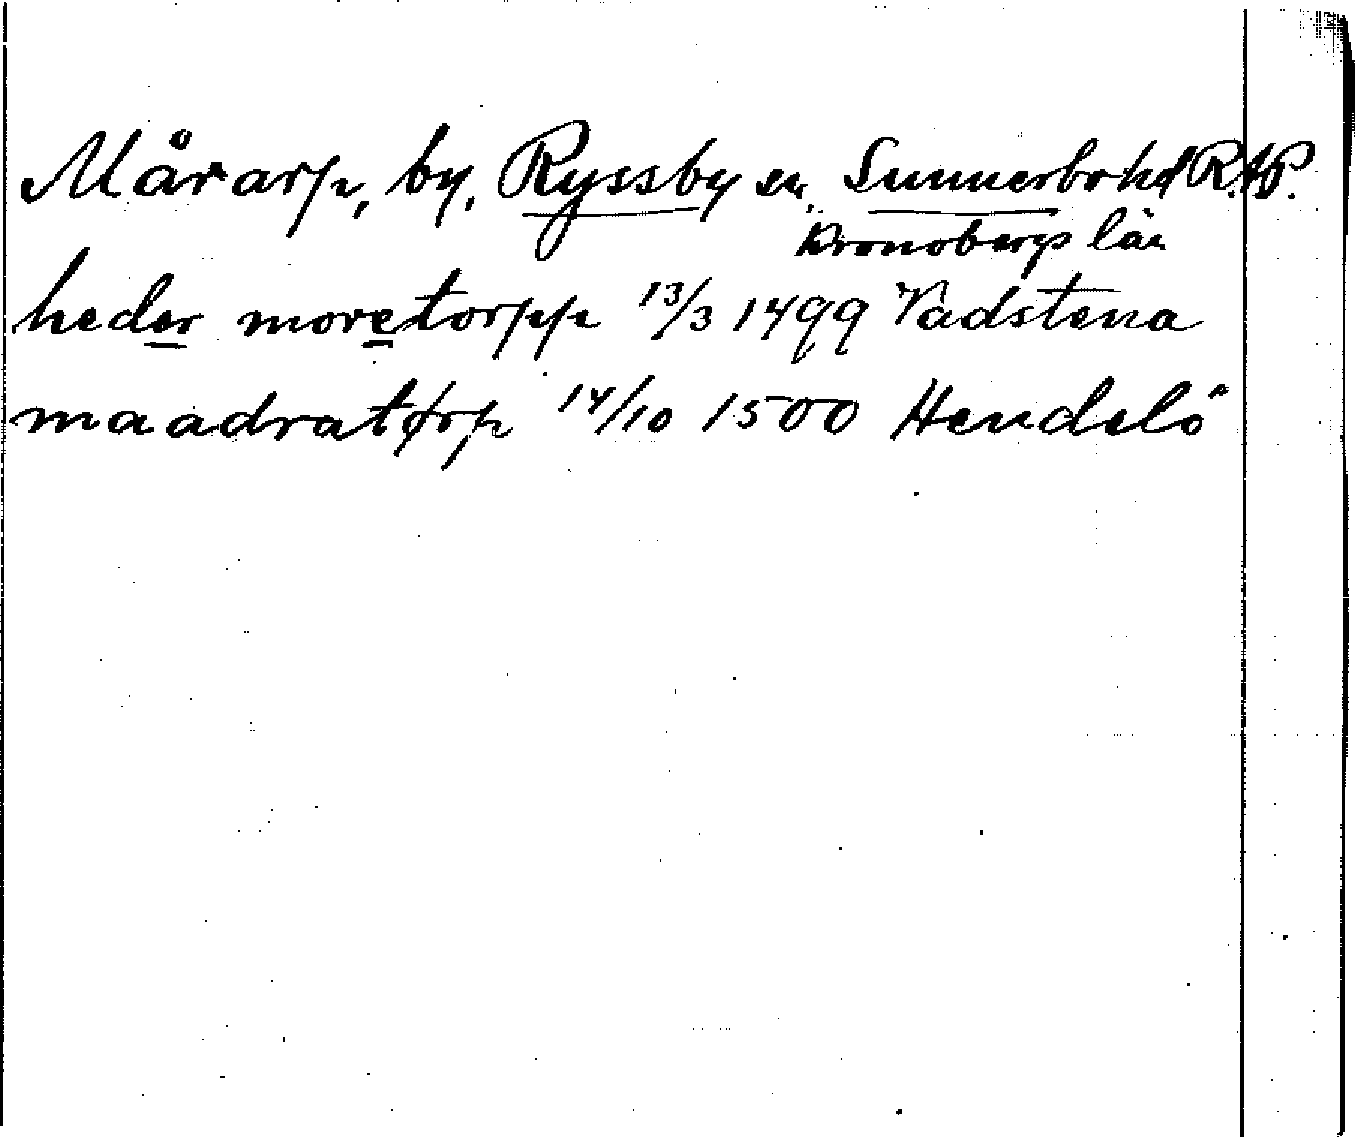 Mårarp, by, Ryssby sn, Sunnerbo hd R.A.P.
Kronobergs län
heder moretorpp 13/3 1499 Vadstena
maadratørp 14/10 1500 Hendelö